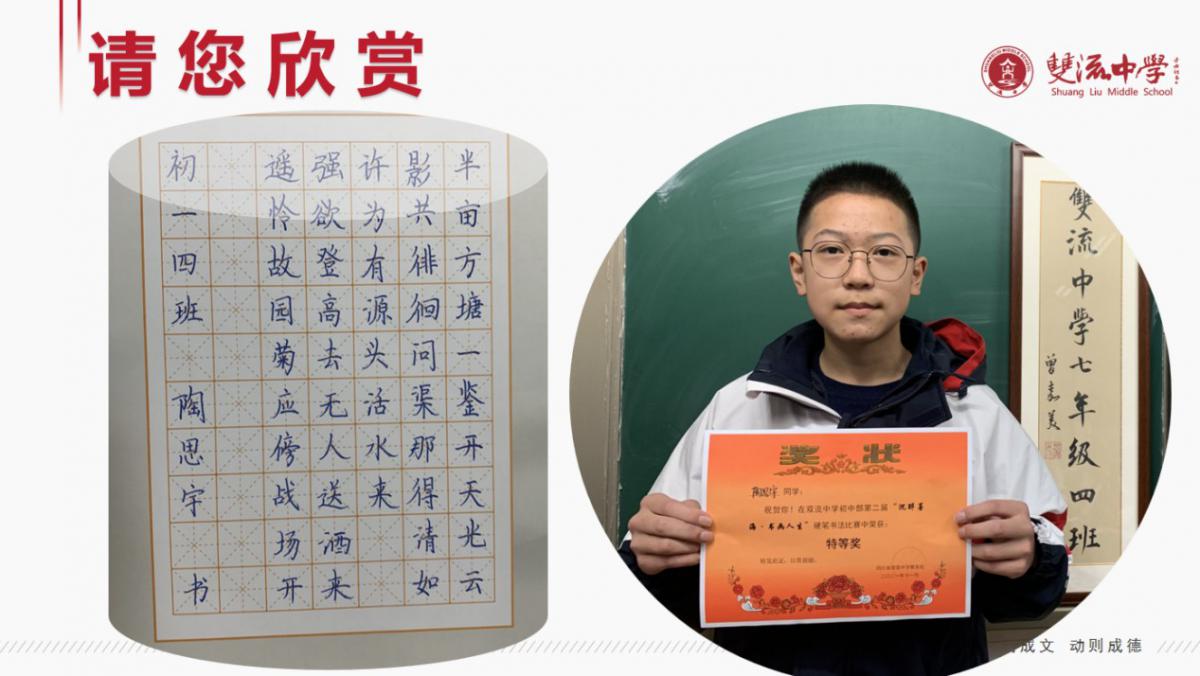 请您欣赏
雙流中學
Shuang Liu Middle School
半亩方塘一鉴开天光云
影共徘徊问渠那得清如
许为有源头活水来
强欲登高去无人送酒来
遥怜故园菊应傍战场开
初一四班 陶思宇 书
雙流中學七年级四班
奖状
陶思宇 同学:
祝贺你!在双流中学初中部第二届“沉醉墨
海·书画人生”硬笔书法比赛中荣获:
特等奖
成文 动则成德